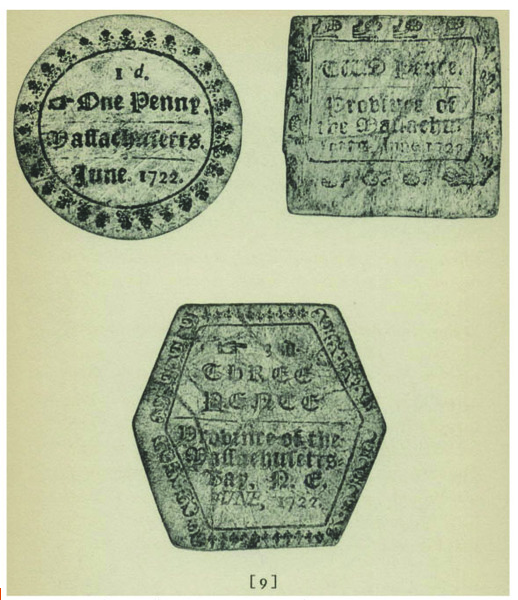 1 d.
One Penny.
Massachusetts.
June. 1722.
TWO Pence.
Province of
the Massachu-
setts, June 1722
3 d.
THREE
PENCE
Province of the
Massachusetts-
Bay, N. E,
JUNE, 1722.
[9]